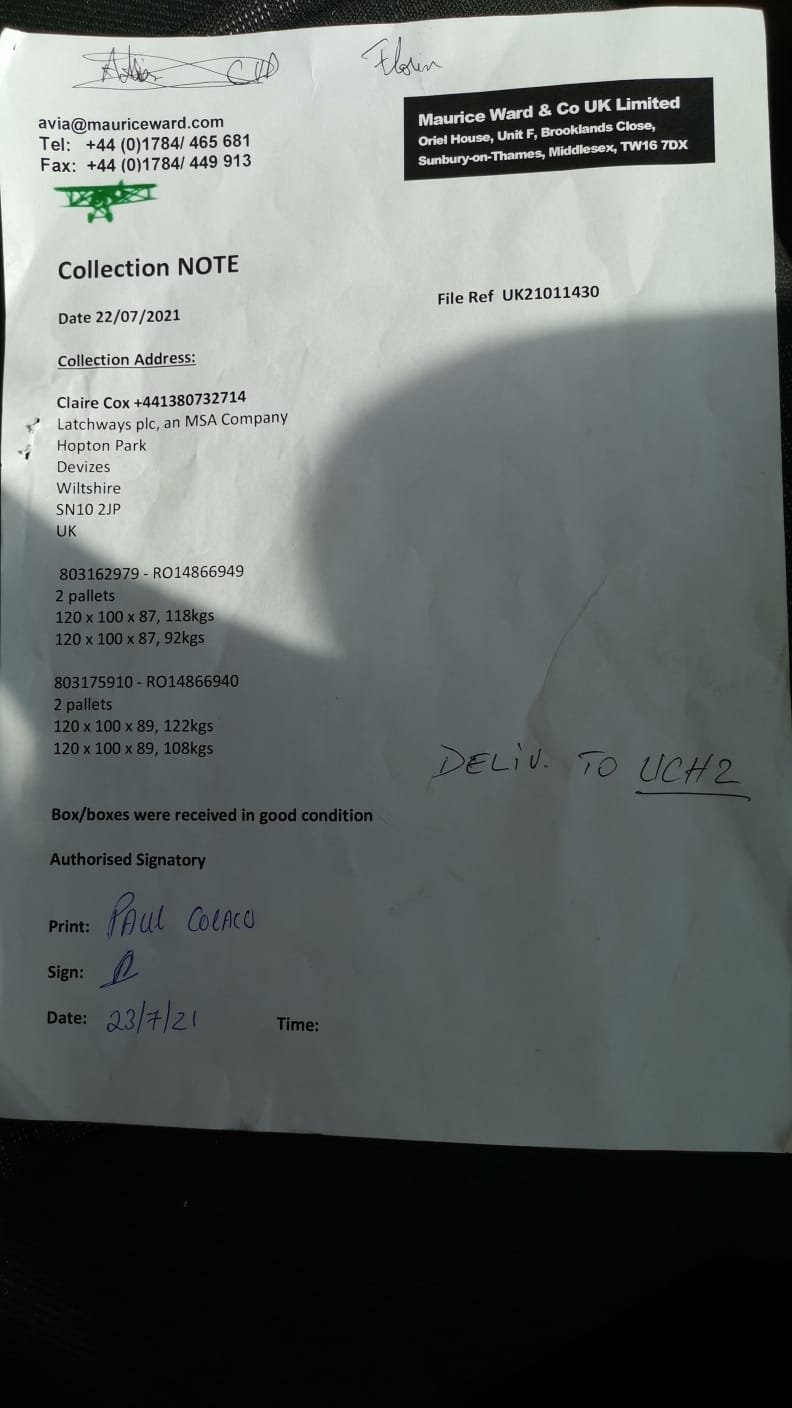 Florin
avia@mauriceward.com
Tel: +44 (0)1784/ 465 681
Fax: +44 (0)1784/ 449 913
Maurice Ward & Co UK Limited
Oriel House, Unit F, Brooklands Close,
Sunbury-on-Thames, Middlesex, TW16 7DX
Collection NOTE
File Ref UK21011430
Date 22/07/2021
Collection Address:
Claire Cox +441380732714
Latchways plc, an MSA Company
Hopton Park
Devizes
Wiltshire
SN10 2JP
UK
803162979 - RO14866949
2 pallets
120 x 100 x 87, 118kgs
120 x 100 x 87, 92kgs
803175910 - RO14866940
2 pallets
120 x 100 x 89, 122kgs
120 x 100 x 89, 108kgs
DELIV. TO UCH2
Box/boxes were received in good condition
Authorised Signatory
Print: PAUL COLACO
Sign:
Date: 23/7/21 Time: